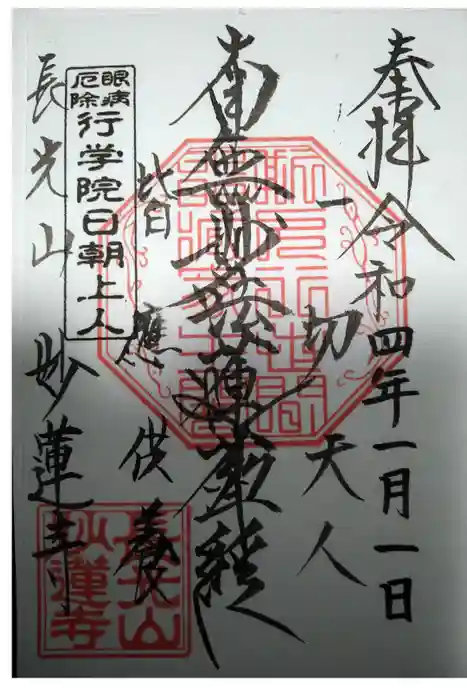 奉拝 令和四年一月一日
一切天人
南無妙法蓮華経
皆應供養
眼病
厄除
行学院日朝上人
長光山 妙蓮寺
長光山
妙蓮寺